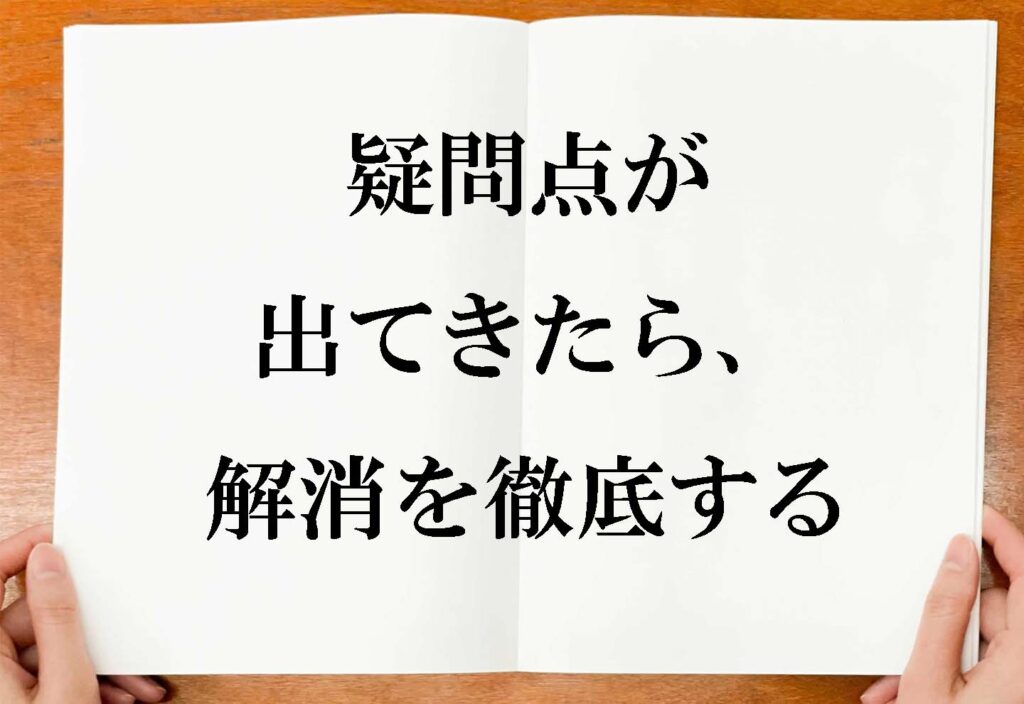 疑問点が
出てきたら、
解消を徹底する